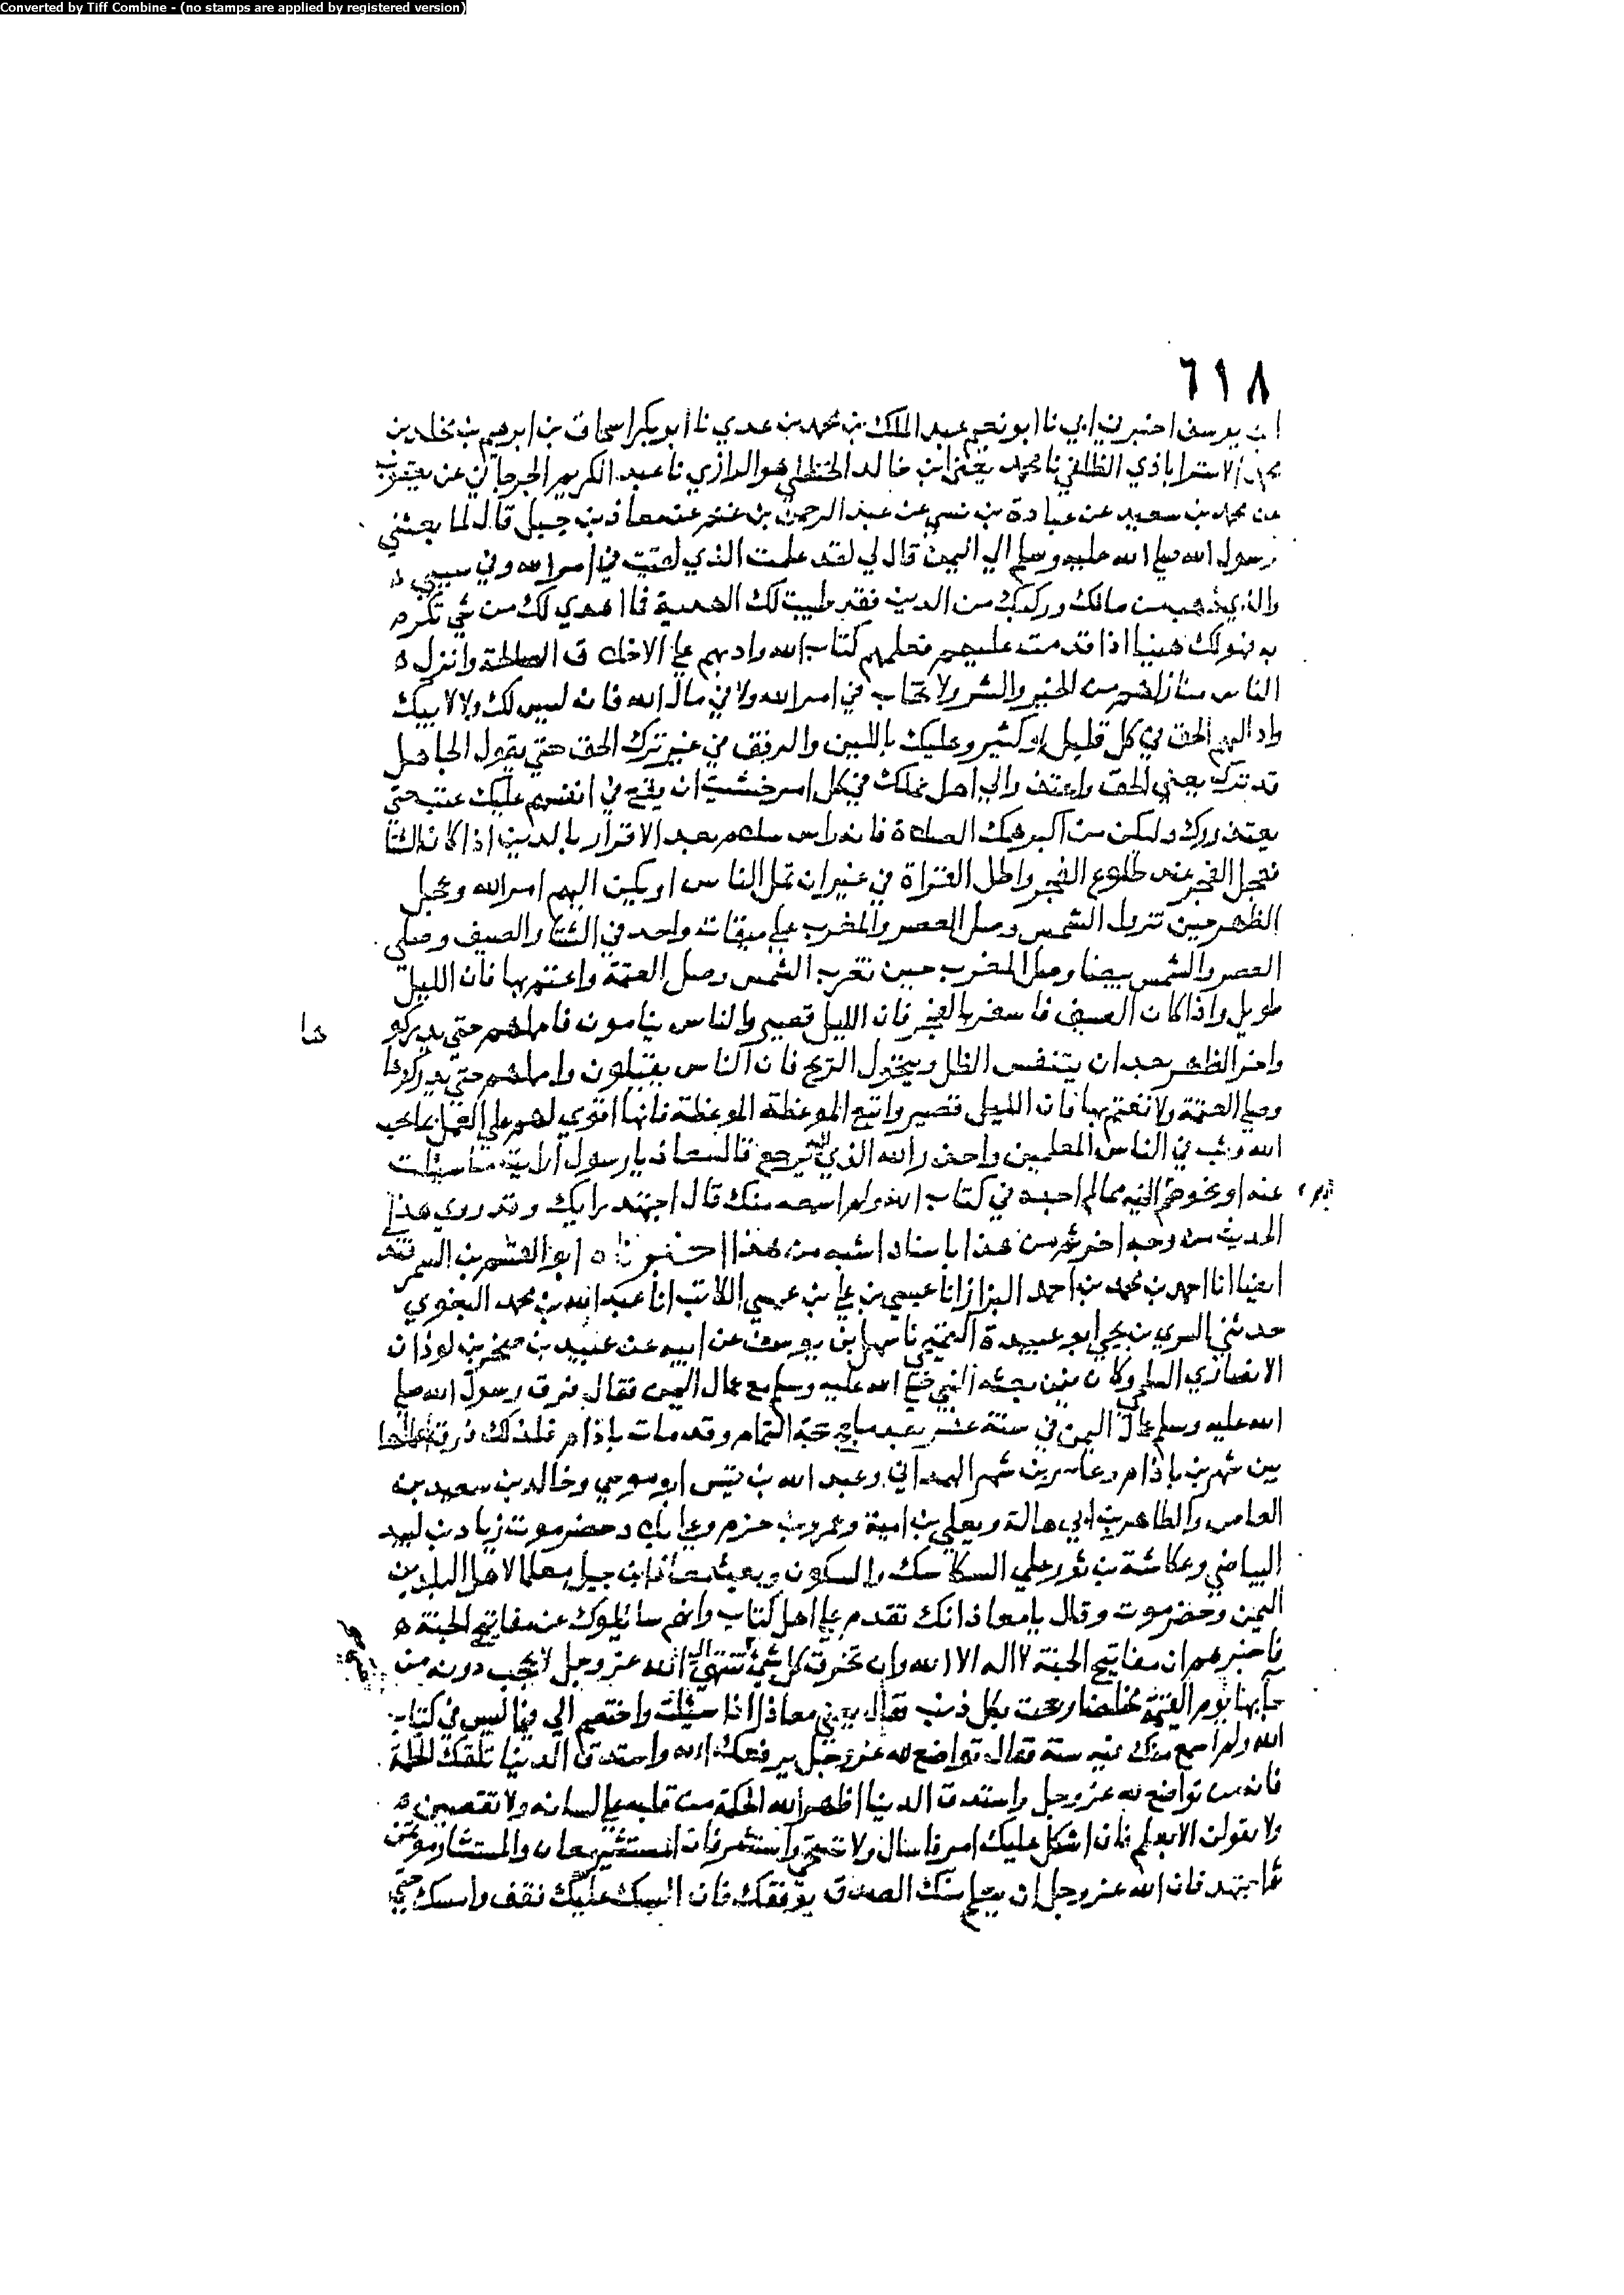 Converted by Tiff Combine - (no stamps are applied by registered version)
٦١٨
ابن يوسف اخبرني ابي نا ابو نعيم عبد الملك بن محمد بن عدي نا ابو بكر اسحاق بن ابرهيم بن مخلد بن
محمد الاستراباذي الطلقي نا محمد يعني ابن خالد الحنظلي هو الرازي نا عبد الكريم الجرجاني عن يعقوب
عن محمد بن سعيد عن عبادة بن نسي عن عبد الرحمن بن غنم عن معاذ بن جبل قال لما بعثني
رسول الله صلي الله عليه وسلم الي اليمن قال لي لقد علمت الذي لقيت في امر الله وفي سبيله
والذي ذهب من مالك وركبك من الدين فقد طيبت لك الهدية فما اهدي لك من شي تكرم
به فهو لك هنيا اذا قدمت عليهم فعلمهم كتاب الله وادبهم علي الاخلاق الصالحة وانزل ه
الناس منازلهم من الخير والشر ولا تحاب في امر الله ولا في مال الله فانه ليس لك ولا لابيك
واد اليهم الحق في كل قليل او كثير وعليك باللين والرفق في غير ترك الحق حتي يقول الجاهل
قد ترك بعض الحق واعتذر الي اهل عملك في كل امر خشيت ان يقع في انفسهم عليك عتب حتي
يعتذروك وليكن من اكبر همك الصلاة فانه راس سلام بعد الاقرار بالدين اذا كان الشتا
فعجل الفجر عند طلوع الفجر واطل القراة في غير ان تمل الناس او يكرن اليهم امر الله وعجل
الظهر حين تزول الشمس وصل العصر والمغرب علي ميقات واحد في الشتا والصيف وصلي
العصر والشمس بيضا وصل المغرب حين تغرب الشمس وصل العتمة واعتم بها فان الليل
طويل واذا كان الصيف فاسفر بالفجر فان الليل قصير والناس ينامون فامهلهم حتي يدركو
ها
واخر الظهر بعد ان يتنفس الظل ويتحول الريح فان الناس يقيلون وامهلهم حتي يدركوها
وصلي العتمة ولا تعتم بها فان الليل قصير واتبع الموعظة الموعظة فانها اقوي لهم علي العمل بما يحب
الله وبث في الناس المعلمين واحذر الله الذي اليه ترجع قال معاذ يا رسول ارايت ما سيلت
عنه او يخوصم اليه مما لم اجده في كتاب الله ولم اسمعه منك قال اجتهد رايك وقد روي هذا
الحديث من وجه اخر غير من هذا باسناد اشبه من هذا اخبرناه ابو القسم بن السمرقند
ايضا انا احمد بن محمد بن احمد البزاز انا عيسي بن علي بن عيسي الكاتب انا عبد الله بن محمد البغوي
حدثني السري بن يحيي ابو عبيدة التميمي نا سهل بن يوسف عن ابيه عن عبيد بن صخر بن لوذان
الانصاري السلمي وكان فيمن بعثه النبي صلي الله عليه وسلم مع عمال اليمن فقال فرق رسول الله صلي
الله عليه وسلم عمال اليمن في سنة عشر بعد ما حج حجة التمام وقد مات باذام فلذلك فرق عملها
بين شهر بن باذام وعامر بن شهر الهمداني وعبد الله بن قيس ابو موسي وخالد بن سعيد بن
العاص والطاهر بن ابي هالة ويعلي بن امية وعمرو بن حزم وعلي بلاد حضرموت زياد بن لبيد
البياضي وعكاشة بن ثور علي السكاسك والسكون وبعث معاذ بن جبل معلما لاهل البلدين
اليمن وحضرموت وقال يا معاذ انك تقدم علي اهل كتاب وانهم سائلوك عن مفاتيح الجنة ه
فاخبرهم ان مفاتيح الجنة لا اله الا الله وان تخرق كل شئ تنتهي الي الله عز وجل لا يحجب دونه من
جا بها يوم القيمة مخلصا رجحت بكل ذنب فقال يعني معاذ اذا سيلت واختصم الي فيما ليس في كتاب
الله ولم اسمع منك فيه سنة فقال تواضع لله عز وجل يرفعك الله واستدق الدنيا تلقك الحكمة
فانه من تواضع لله عز وجل واستدق الدنيا اظهر الله الحكمة من قلبه علي لسانه ولا تقضين ه
ولا تقولن الا بعلم فان اشكل عليك امر فاسال ولا تستحي واستشر فان المستشير معان والمستشار موتمن
ثم اجتهد فان الله عز وجل ان يعلم منك الصدق يوفقك فان التبس عليك فقف وامسك حتي